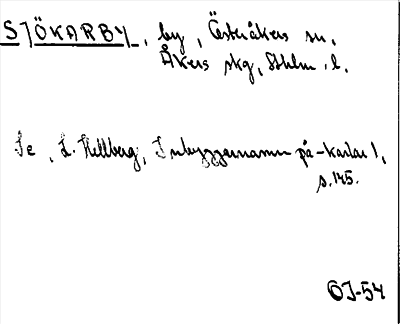 SJÖKARBY, by, Österåkers sn,
Åkers skg, Sthlm. l.
Se, L. Hellberg, Inbyggarnamn på -karlar 1,
s. 145.
ÖJ-54